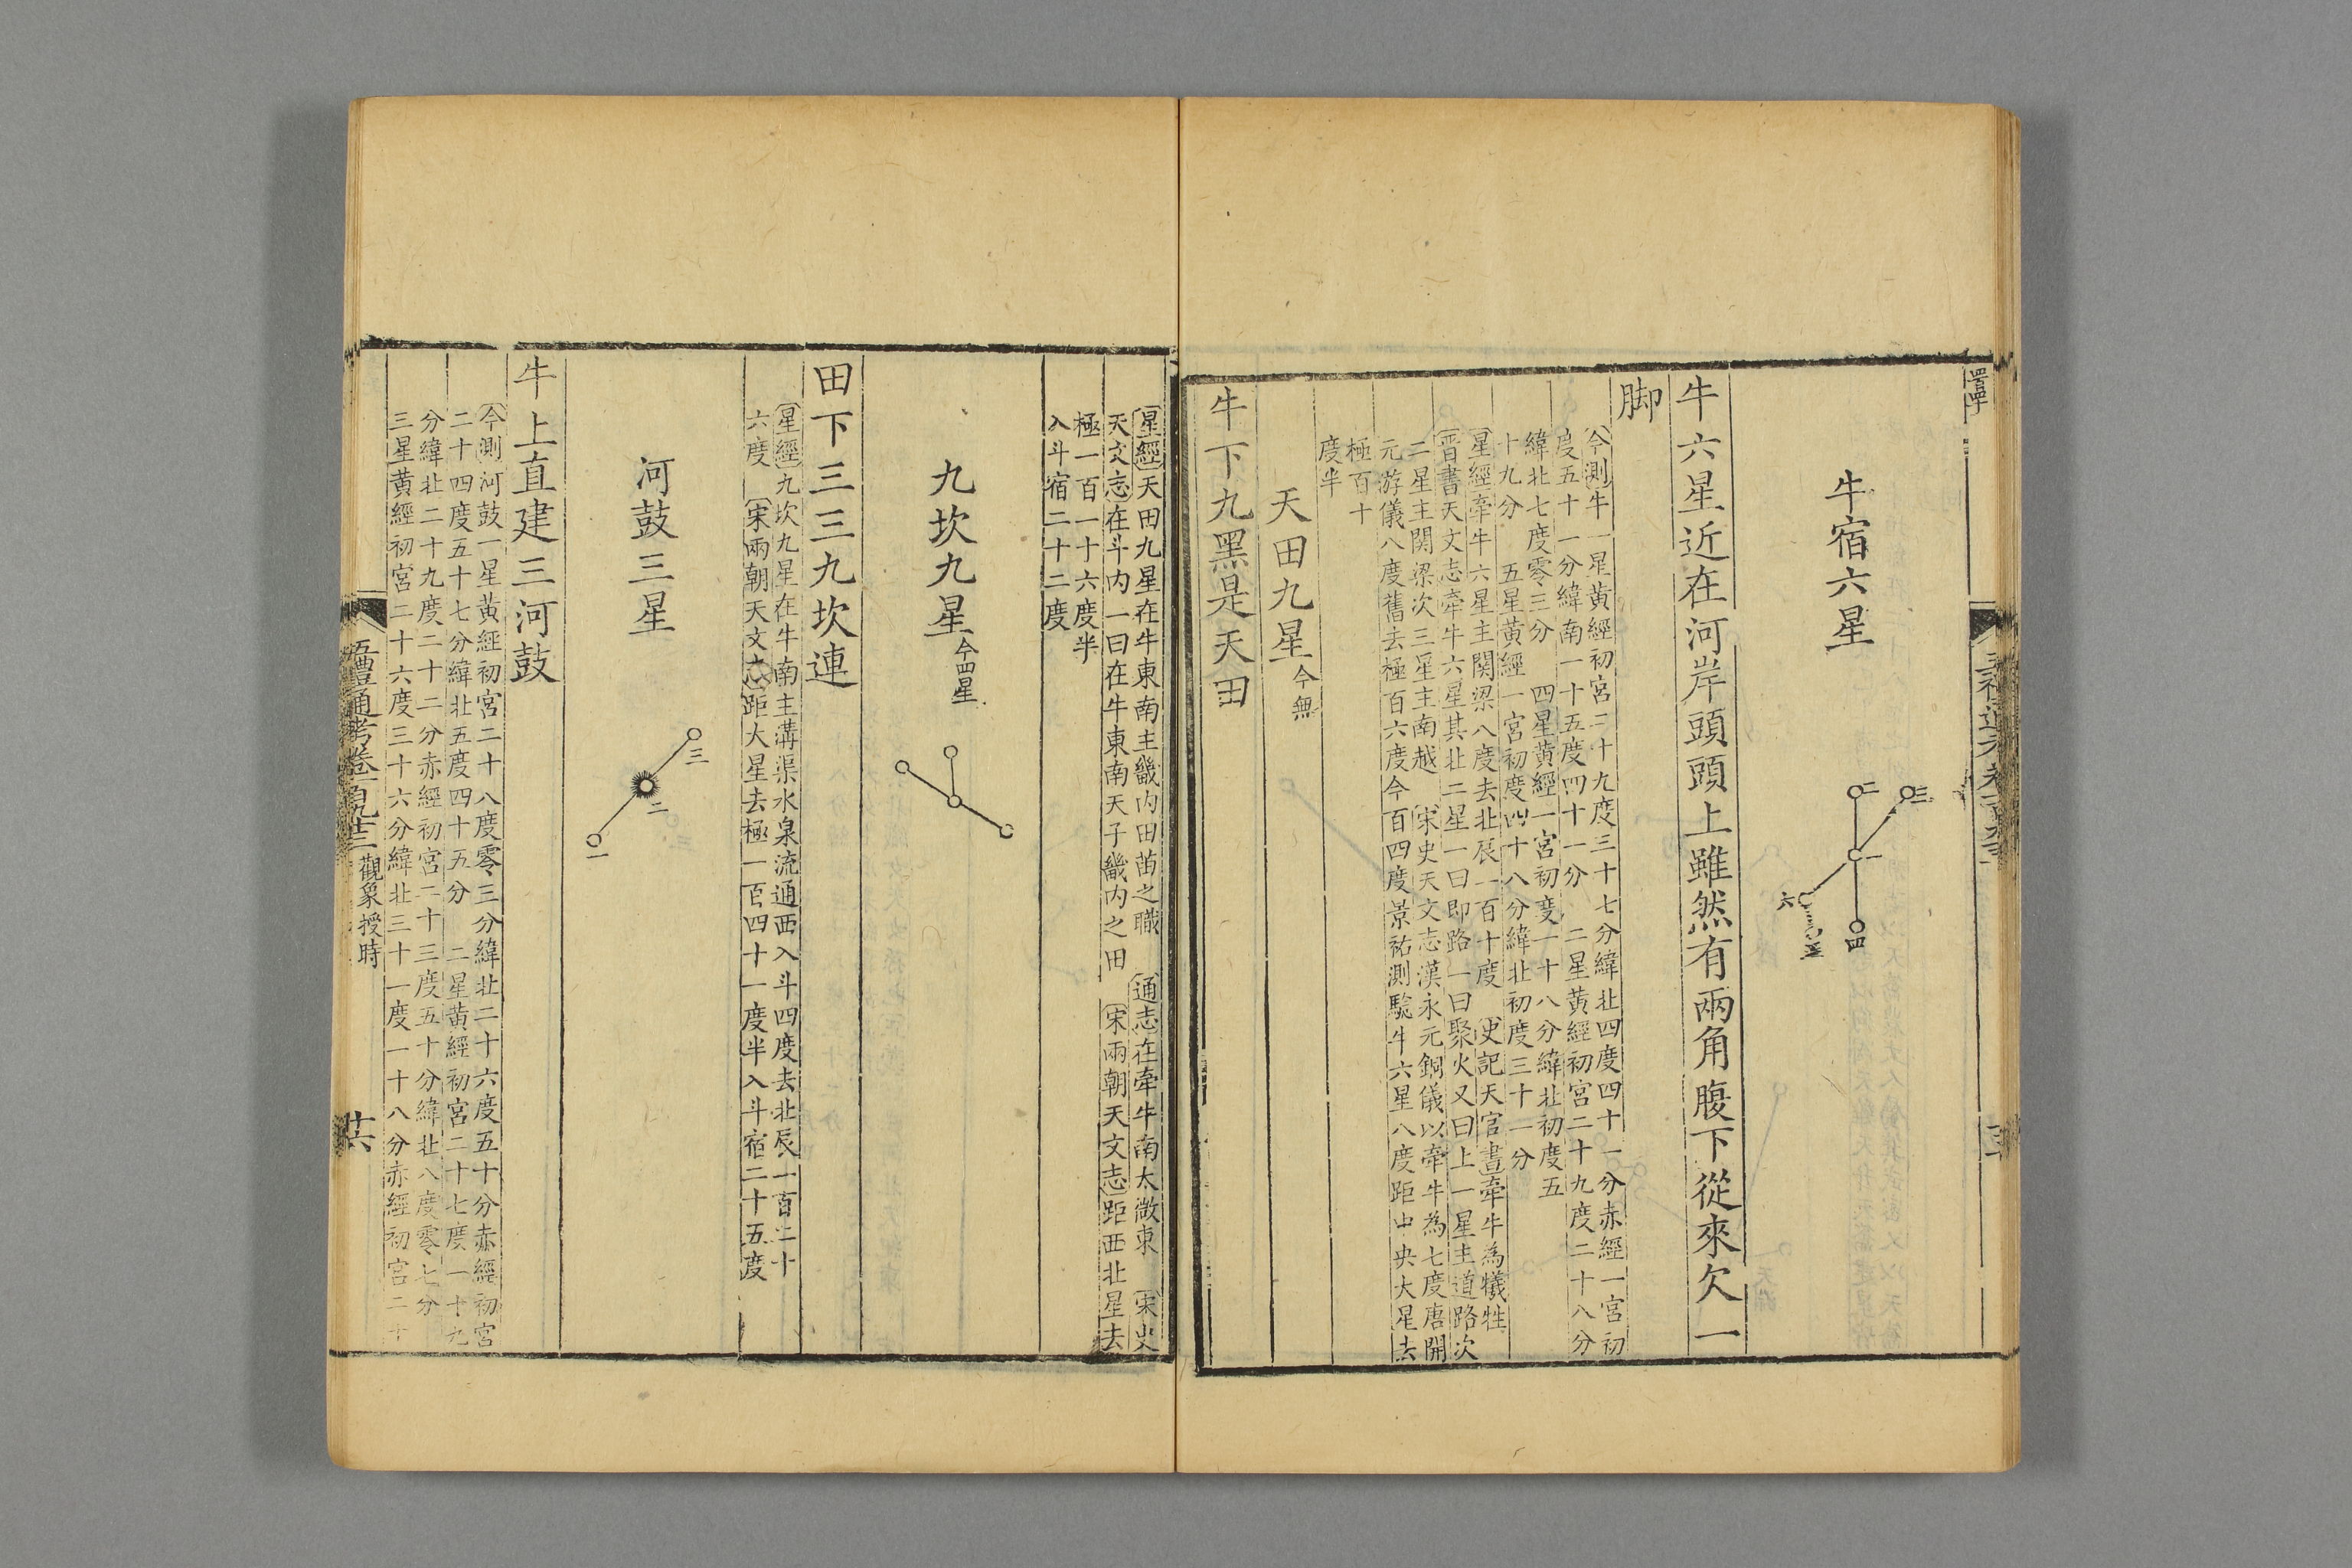 牛宿六星
二
三
一
四
五
六
牛六星近在河岸頭頭上雖然有兩角腹下從來欠一
脚
今測牛一星黃經初宮二十九度三十七分緯北四度四十一分赤經一宮初
度五十一分緯南一十五度四十一分　二星黃經初宮二十九度二十八分
緯北七度零三分　四星黃經一宮初度一十八分緯北初度五
十九分　五星黃經一宮初度四十八分緯北初度三十一分
星經牽牛六星主關梁八度去北辰一百十度　史記天官書牽牛為犧牲
晉書天文志牽牛六星其北二星一曰即路一曰聚火又曰上一星主道路次
二星主關梁次三星主南越　宋史天文志漢永元銅儀以牽牛為七度唐開
元游儀八度舊去極百六度今百四度景祐測驗牛六星八度距中央大星去
極百十
度半
天田九星今無
牛下九黑是天田
星經天田九星在牛東南主畿内田苗之職　通志在牽牛南太微東　宋史
天文志在斗内一曰在牛東南天子畿内之田　宋兩朝天文志距西北星去
極一百一十六度半
入斗宿二十二度
九坎九星今四星
田下三三九坎連
星經九坎九星在牛南主溝渠水泉流通西入斗四度去北辰一百二十
六度　宋兩朝天文志距大星去極一百四十一度半入斗宿二十五度
河鼓三星
三
二
一
牛上直建三河鼓
今測河鼓一星黃經初宮二十八度零三分緯北二十六度五十分赤經初宮
二十四度五十七分緯北五度四十五分　二星黃經初宮二十七度一十九
分緯北二十九度二十二分赤經初宮二十三度五十分緯北八度零七分
三星黃經初宮二十六度三十六分緯北三十一度一十八分赤經初宮二十
五禮通考卷一百九十三　觀象授時
十六